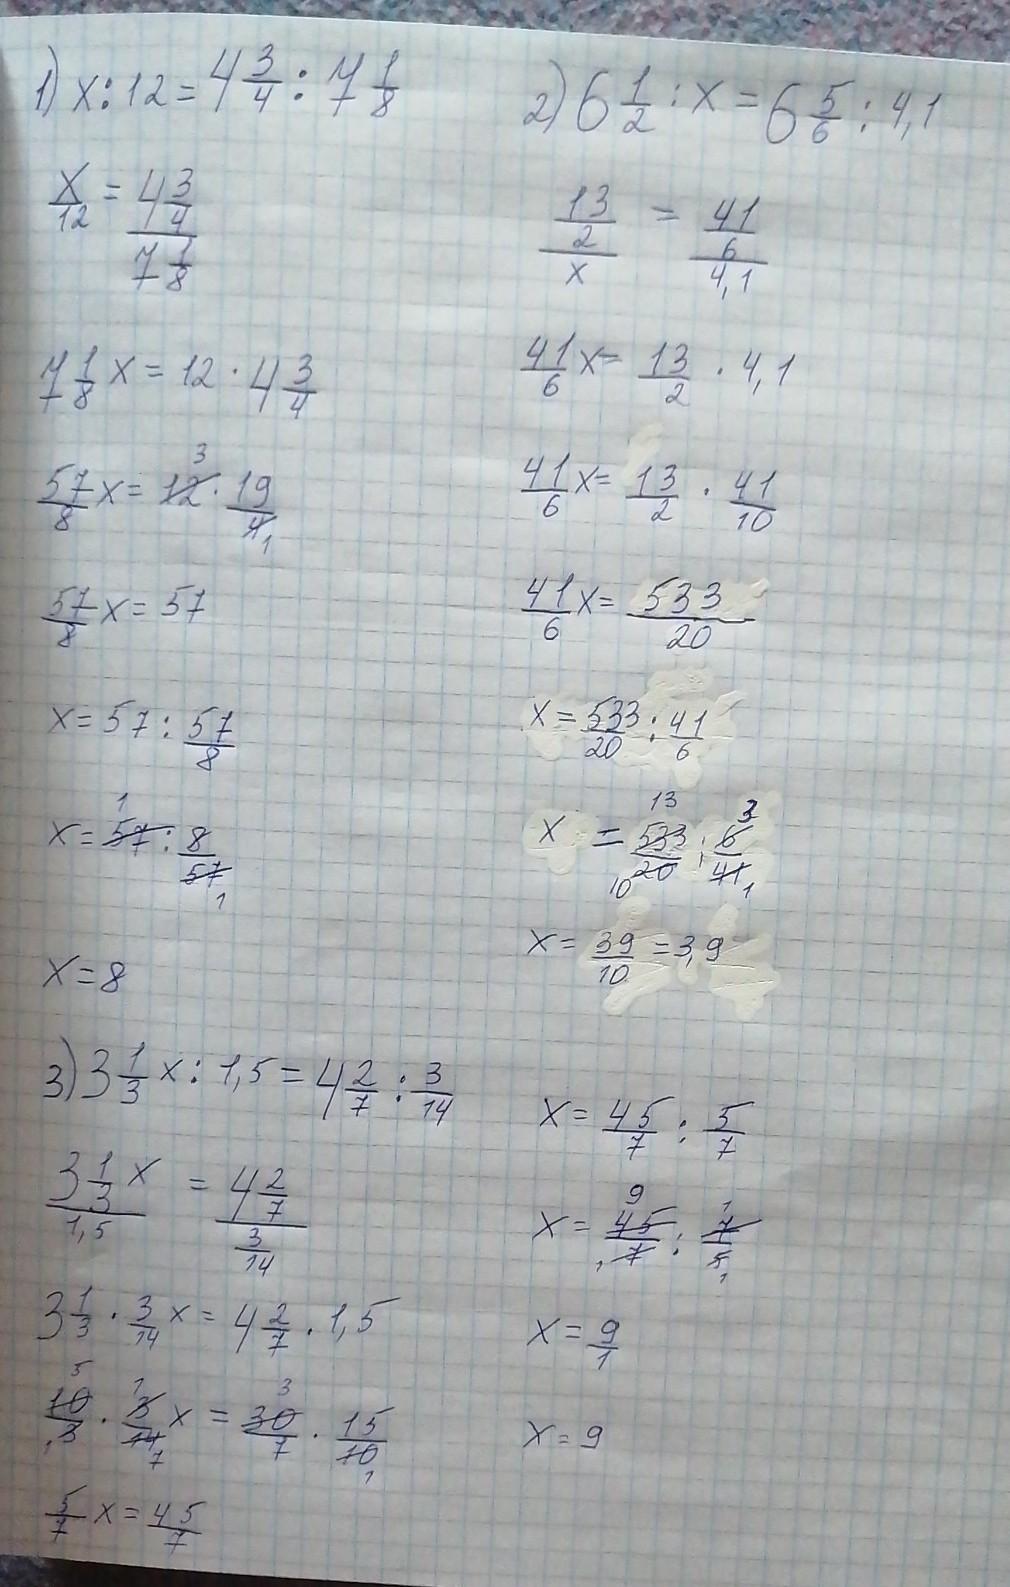 1) x : 12 = 4 3/4 : 7 1/8
x/12 = (4 3/4)/(7 1/8)
7 1/8 x = 12 · 4 3/4
57/8 x = 12 3 · 19/4 1
57/8 x = 57
x = 57 : 57/8
x = 57 1 : 8/57 1
x = 8
2) 6 1/2 : x = 6 5/6 : 4,1
(13/2)/x = (41/6)/4,1
41/6 x = 13/2 · 4,1
41/6 x = 13/2 · 41/10
41/6 x = 533/20
x = 533/20 : 41/6
x = 533 13/20 10 : 6 3/41 1
x = 39/10 = 3,9
3) 3 1/3 x : 1,5 = 4 2/7 : 3/14
(3 1/3 x)/1,5 = (4 2/7)/(3/14)
3 1/3 · 3/14 x = 4 2/7 · 1,5
10 5/3 1 · 3 1/14 7 x = 30 3/7 · 15/10 1
5/7 x = 45/7
x = 45/7 : 5/7
x = 45 9/7 1 : 7 1/5 1
x = 9/1
x = 9